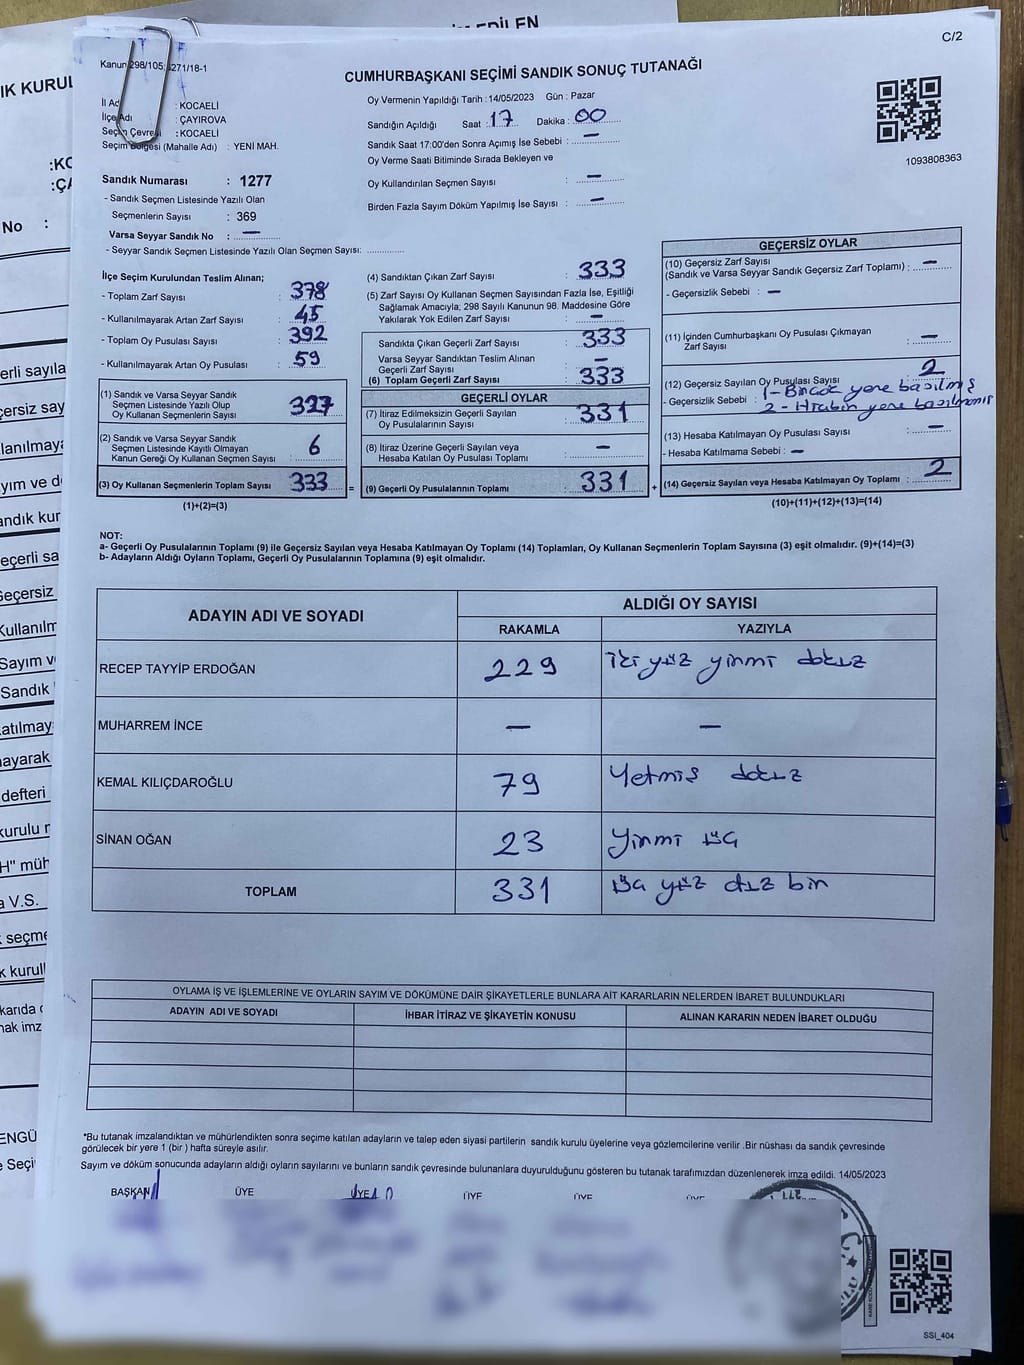 EDİLEN
C/2
Kanun 298/105; 271/18-1
CUMHURBAŞKANI SEÇİMİ SANDIK SONUÇ TUTANAĞI
İl Adı : KOCAELİ
İlçe Adı : ÇAYIROVA
Seçim Çevresi : KOCAELİ
Seçim Bölgesi (Mahalle Adı) : YENİ MAH.
Sandık Numarası : 1277
- Sandık Seçmen Listesinde Yazılı Olan
Seçmenlerin Sayısı : 369
Varsa Seyyar Sandık No : —
- Seyyar Sandık Seçmen Listesinde Yazılı Olan Seçmen Sayısı:
Oy Vermenin Yapıldığı Tarih : 14/05/2023 Gün : Pazar
Sandığın Açıldığı Saat : 17 Dakika : 00
Sandık Saat 17:00'den Sonra Açımış İse Sebebi : —
Oy Verme Saati Bitiminde Sırada Bekleyen ve
Oy Kullandırılan Seçmen Sayısı : —
Birden Fazla Sayım Döküm Yapılmış İse Sayısı : —
1093808363
İlçe Seçim Kurulundan Teslim Alınan;
- Toplam Zarf Sayısı : 378
- Kullanılmayarak Artan Zarf Sayısı : 45
- Toplam Oy Pusulası Sayısı : 392
- Kullanılmayarak Artan Oy Pusulası : 59
(1) Sandık ve Varsa Seyyar Sandık
Seçmen Listesinde Yazılı Olup
Oy Kullanan Seçmenlerin Sayısı : 327
(2) Sandık ve Varsa Seyyar Sandık
Seçmen Listesinde Kayıtlı Olmayan
Kanun Gereği Oy Kullanan Seçmen Sayısı : 6
(3) Oy Kullanan Seçmenlerin Toplam Sayısı : 333 =
(1)+(2)=(3)
(4) Sandıktan Çıkan Zarf Sayısı : 333
(5) Zarf Sayısı Oy Kullanan Seçmen Sayısından Fazla İse, Eşitliği
Sağlamak Amacıyla; 298 Sayılı Kanunun 98. Maddesine Göre
Yakılarak Yok Edilen Zarf Sayısı : —
Sandıkta Çıkan Geçerli Zarf Sayısı : 333
Varsa Seyyar Sandıktan Teslim Alınan
Geçerli Zarf Sayısı : —
(6) Toplam Geçerli Zarf Sayısı : 333
GEÇERLİ OYLAR
(7) İtiraz Edilmeksizin Geçerli Sayılan
Oy Pusulalarının Sayısı : 331
(8) İtiraz Üzerine Geçerli Sayılan veya
Hesaba Katılan Oy Pusulası Toplamı : —
(9) Geçerli Oy Pusulalarının Toplamı : 331 +
GEÇERSİZ OYLAR
(10) Geçersiz Zarf Sayısı
(Sandık ve Varsa Seyyar Sandık Geçersiz Zarf Toplamı) : —
- Geçersizlik Sebebi : —
(11) İçinden Cumhurbaşkanı Oy Pusulası Çıkmayan
Zarf Sayısı : —
(12) Geçersiz Sayılan Oy Pusulası Sayısı : 2
- Geçersizlik Sebebi : 1- Bircok yere basılmış
2- yere basılmamış
(13) Hesaba Katılmayan Oy Pusulası Sayısı : —
- Hesaba Katılmama Sebebi : —
(14) Geçersiz Sayılan veya Hesaba Katılmayan Oy Toplamı : 2
(10)+(11)+(12)+(13)=(14)
NOT:
a- Geçerli Oy Pusulalarının Toplamı (9) ile Geçersiz Sayılan veya Hesaba Katılmayan Oy Toplamı (14) Toplamları, Oy Kullanan Seçmenlerin Toplam Sayısına (3) eşit olmalıdır. (9)+(14)=(3)
b- Adayların Aldığı Oyların Toplamı, Geçerli Oy Pusulalarının Toplamına (9) eşit olmalıdır.
ADAYIN ADI VE SOYADI
ALDIĞI OY SAYISI
RAKAMLA YAZIYLA
RECEP TAYYİP ERDOĞAN 229 iki yüz yirmi dokuz
MUHARREM İNCE — —
KEMAL KILIÇDAROĞLU 79 Yetmiş dokuz
SİNAN OĞAN 23 Yirmi üç
TOPLAM 331 üç yüz otuz bir
OYLAMA İŞ VE İŞLEMLERİNE VE OYLARIN SAYIM VE DÖKÜMÜNE DAİR ŞİKAYETLERLE BUNLARA AİT KARARLARIN NELERDEN İBARET BULUNDUKLARI
ADAYIN ADI VE SOYADI İHBAR İTİRAZ VE ŞİKAYETİN KONUSU ALINAN KARARIN NEDEN İBARET OLDUĞU
*Bu tutanak imzalandıktan ve mühürlendikten sonra seçime katılan adayların ve talep eden siyasi partilerin sandık kurulu üyelerine veya gözlemcilerine verilir .Bir nüshası da sandık çevresinde
görülecek bir yere 1 (bir ) hafta süreyle asılır.
Sayım ve döküm sonucunda adayların aldığı oyların sayılarını ve bunların sandık çevresinde bulunanlara duyurulduğunu gösteren bu tutanak tarafımızdan düzenlenerek imza edildi. 14/05/2023
BAŞKAN ÜYE ÜYE ÜYE ÜYE ÜYE
SSI_404